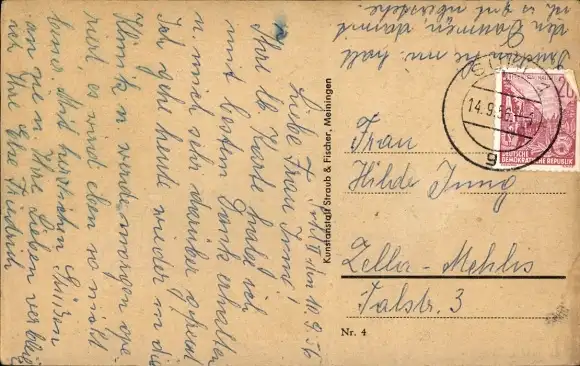 Suhl, den 10.9.56
Liebe Frau Jung!
Ihre lb. Karte habe ich
mit bestem Dank erhalten
u. mich sehr darüber gefreut
Ich gehe heute wieder in die
Klinik u. werde morgen ope-
riert es wird eben so nicht
Mit herzlichen Grüßen
an Sie u. Ihre Lieben verbleibe
ich Ihre Else Friedrich
Drücken Sie mir bald
den Daumen, damit
ich es gut überstehe.
Kunstanstalt Straub & Fischer, Meiningen
SUHL 1
14.9.56
g
20
DEUTSCHE
DEMOKRATISCHE REPUBLIK
Frau
Hilde Jung
Zella-Mehlis
Talstr. 3
Nr. 4